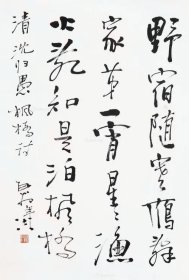 野宿随寒雁辞
家第一宵星々渔
火乱知是泊枫桥
清沈归愚枫桥诗